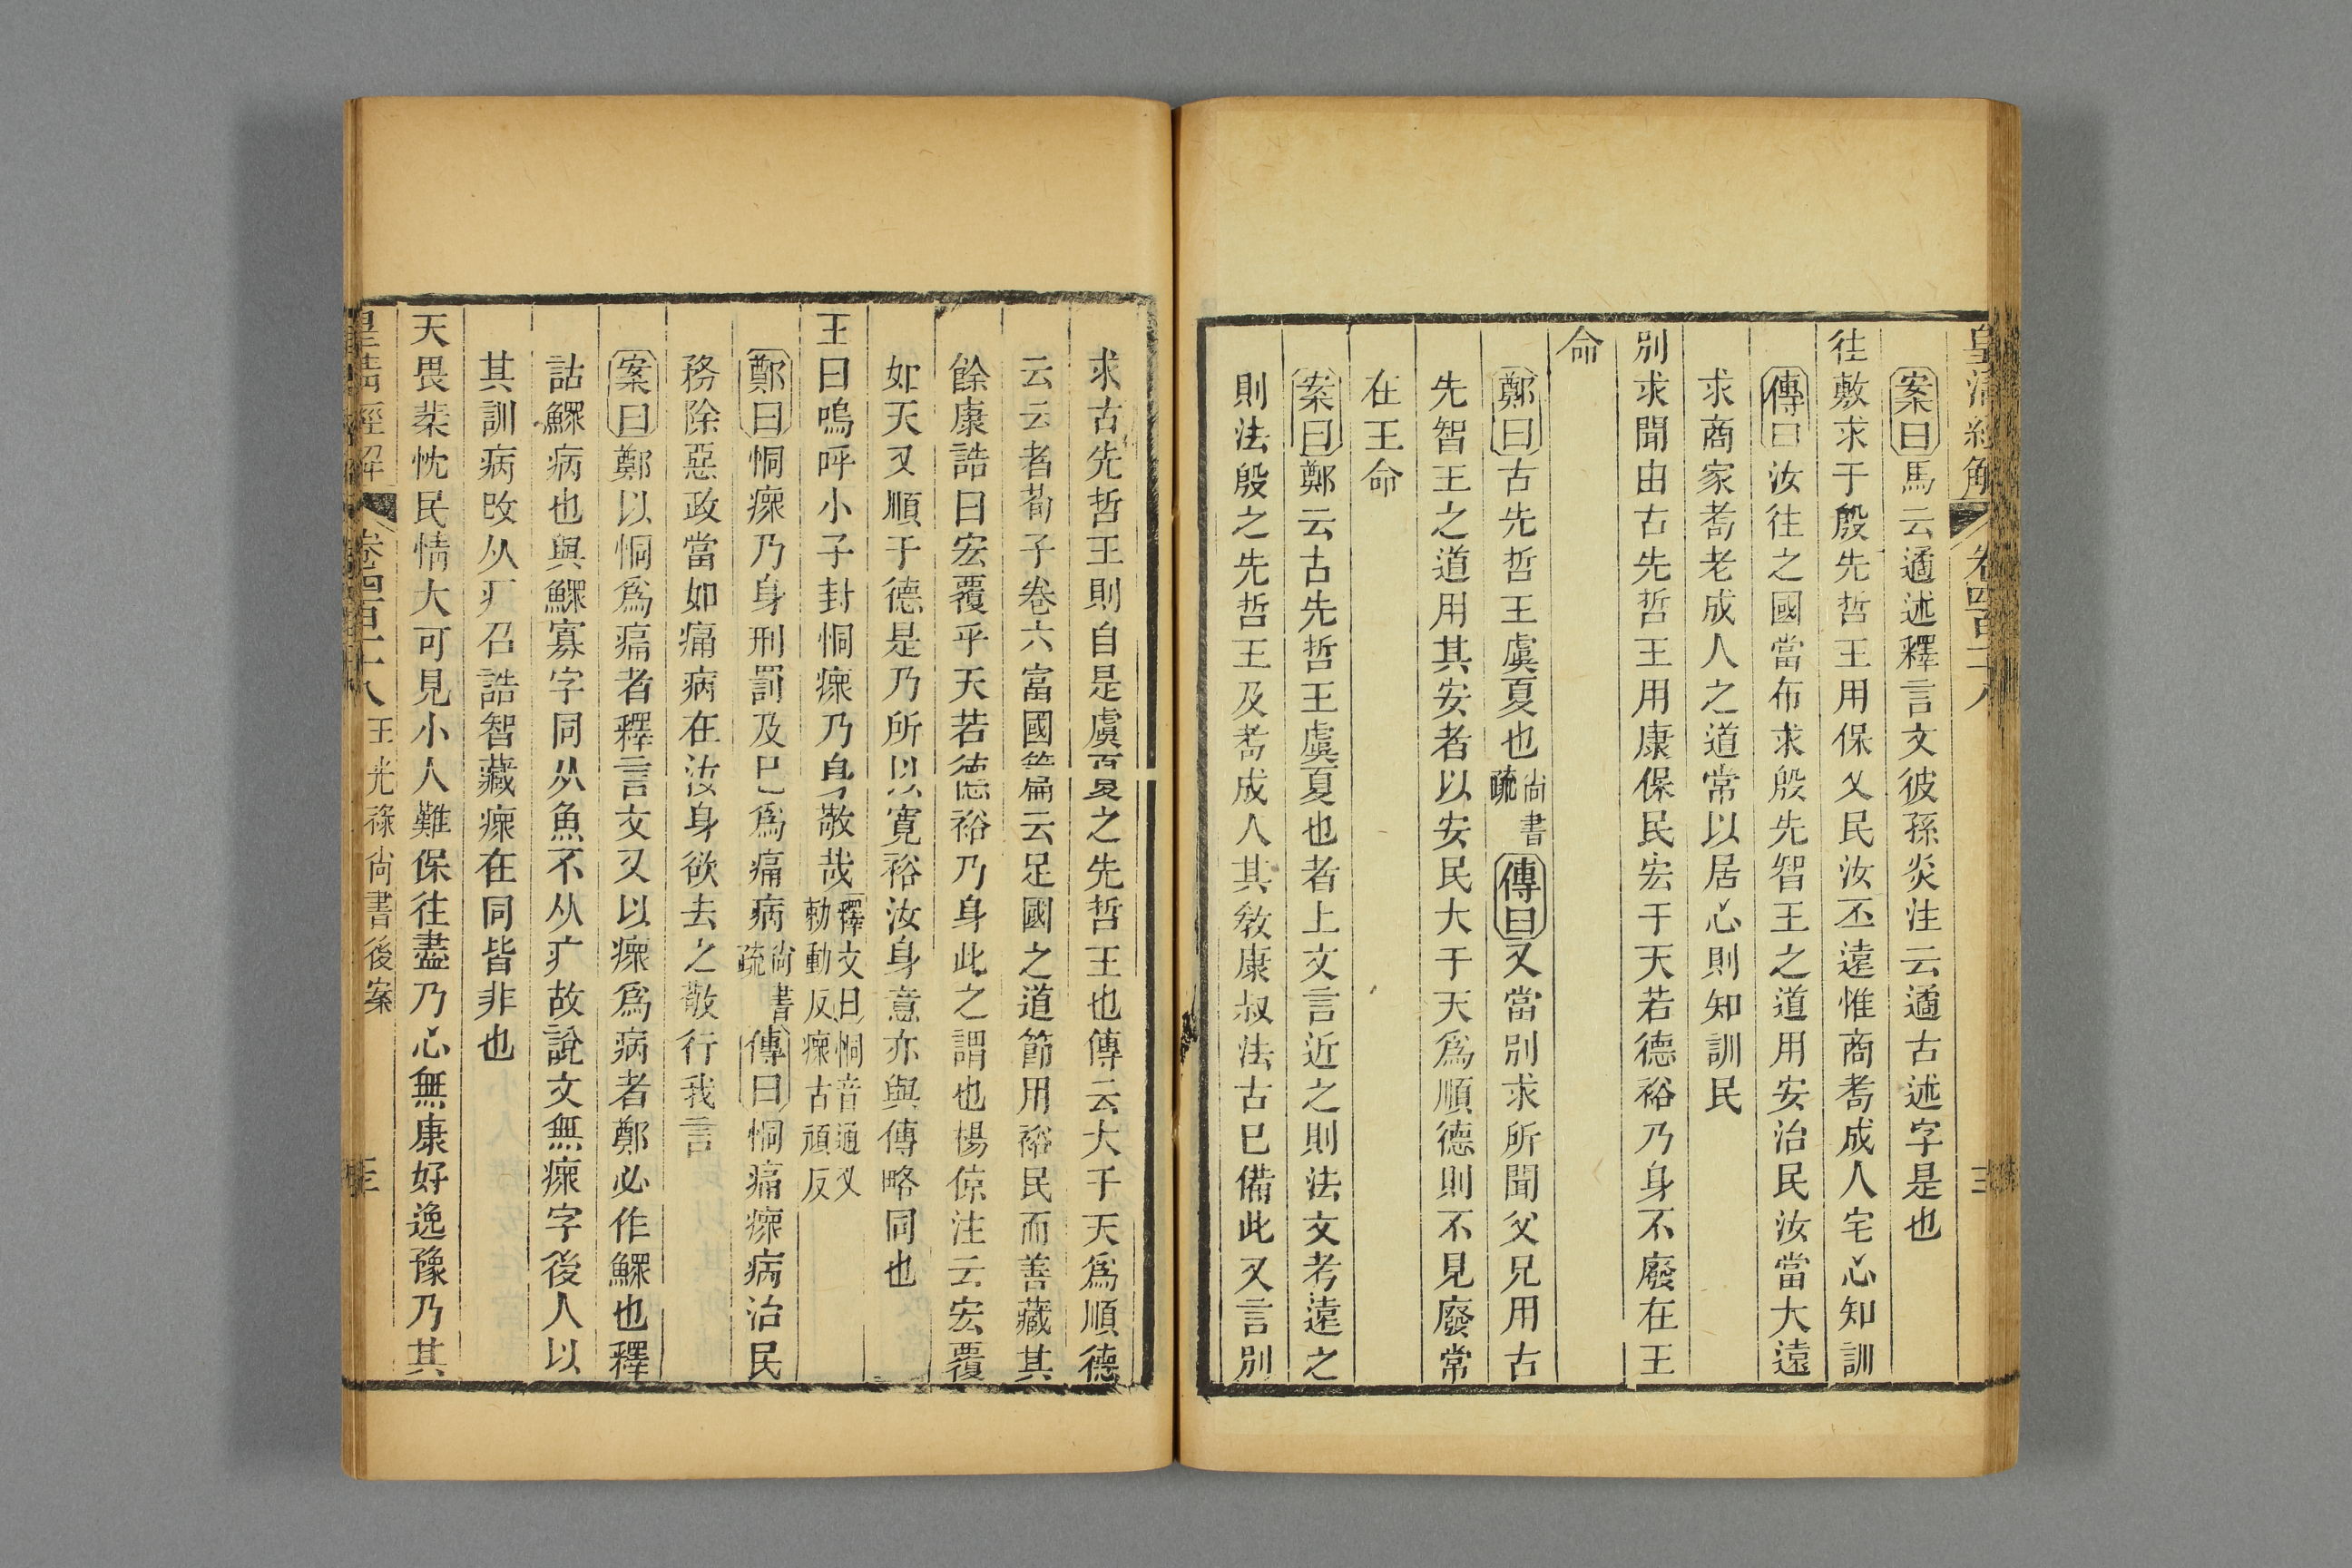 皇清經解
卷四百二十八
案曰馬云遹述釋言文彼孫炎注云遹古述字是也
往敷求于殷先哲王用保乂民汝丕遠惟商耇成人宅心知訓
傳曰汝往之國當布求殷先智王之道用安治民汝當大遠
求商家耇老成人之道常以居心則知訓民
別求聞由古先哲王用康保民宏于天若德裕乃身不廢在王
命
鄭曰古先哲王虞夏也尙書疏傳曰又當別求所聞父兄用古
先智王之道用其安者以安民大于天爲順德則不見廢常
在王命
案曰鄭云古先哲王虞夏也者上文言近之則法文考遠之
則法殷之先哲王及耇成人其敎康叔法古已備此又言別
求古先哲王則自是虞夏之先哲王也傳云大于天爲順德
云云者荀子卷六富國篇云足國之道節用裕民而善藏其
餘康誥曰宏覆乎天若德裕乃身此之謂也楊倞注云宏覆
如天又順于德是乃所以寛裕汝身意亦與傳略同也
王曰嗚呼小子封恫瘝乃身敬哉釋文曰恫音通又勑動反瘝古頑反
鄭曰恫瘝乃身刑罰及已爲痛病尙書疏傳曰恫痛瘝病治民
務除惡政當如痛病在汝身欲去之敬行我言
案曰鄭以恫爲痛者釋言文又以瘝爲病者鄭必作鰥也釋
詁鰥病也與鰥寡字同从魚不从疒故說文無瘝字後人以
其訓病改从疒召誥智藏瘝在同皆非也
天畏棐忱民情大可見小人難保往盡乃心無康好逸豫乃其
皇淸經解
卷四百二十八
王光祿尙書後案